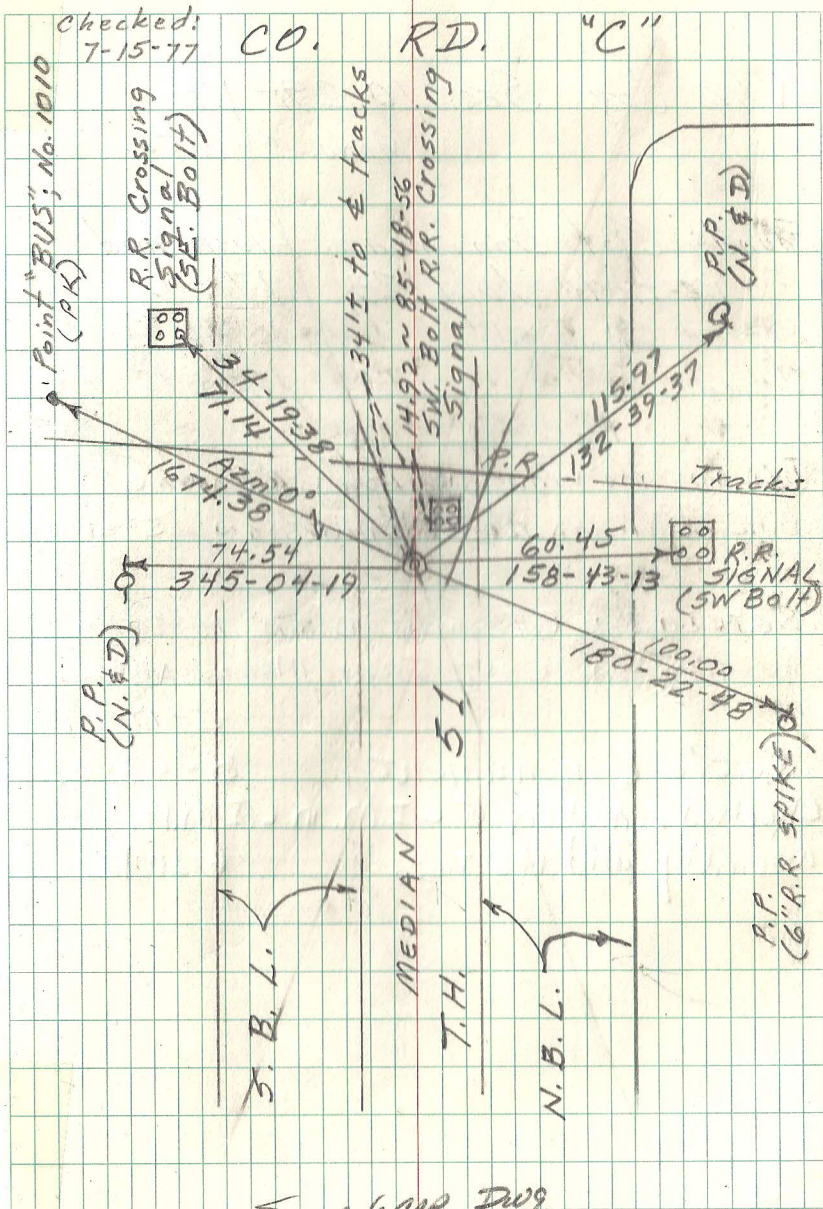 Checked:
7-15-77
CO. RD. "C"
Point "BUS"; No. 1010
(PK)
R.R. Crossing
Signal
(SE. Bolt)
34'± to ℄ tracks
14.92 ~ 85-48-56
SW. Bolt R.R. Crossing
Signal
P.P.
(N. & D)
34-19-38
71.14
115.97
132-39-37
Azm 0°
1674.38
R.R.
Tracks
74.54
345-04-19
60.45
158-43-13
R.R.
SIGNAL
(SW Bolt)
P.P.
(N. & D)
100.00
180-22-48
51
P.P.
(6" R.R. SPIKE)
S. B. L.
MEDIAN
T.H.
N. B. L.
Dwg